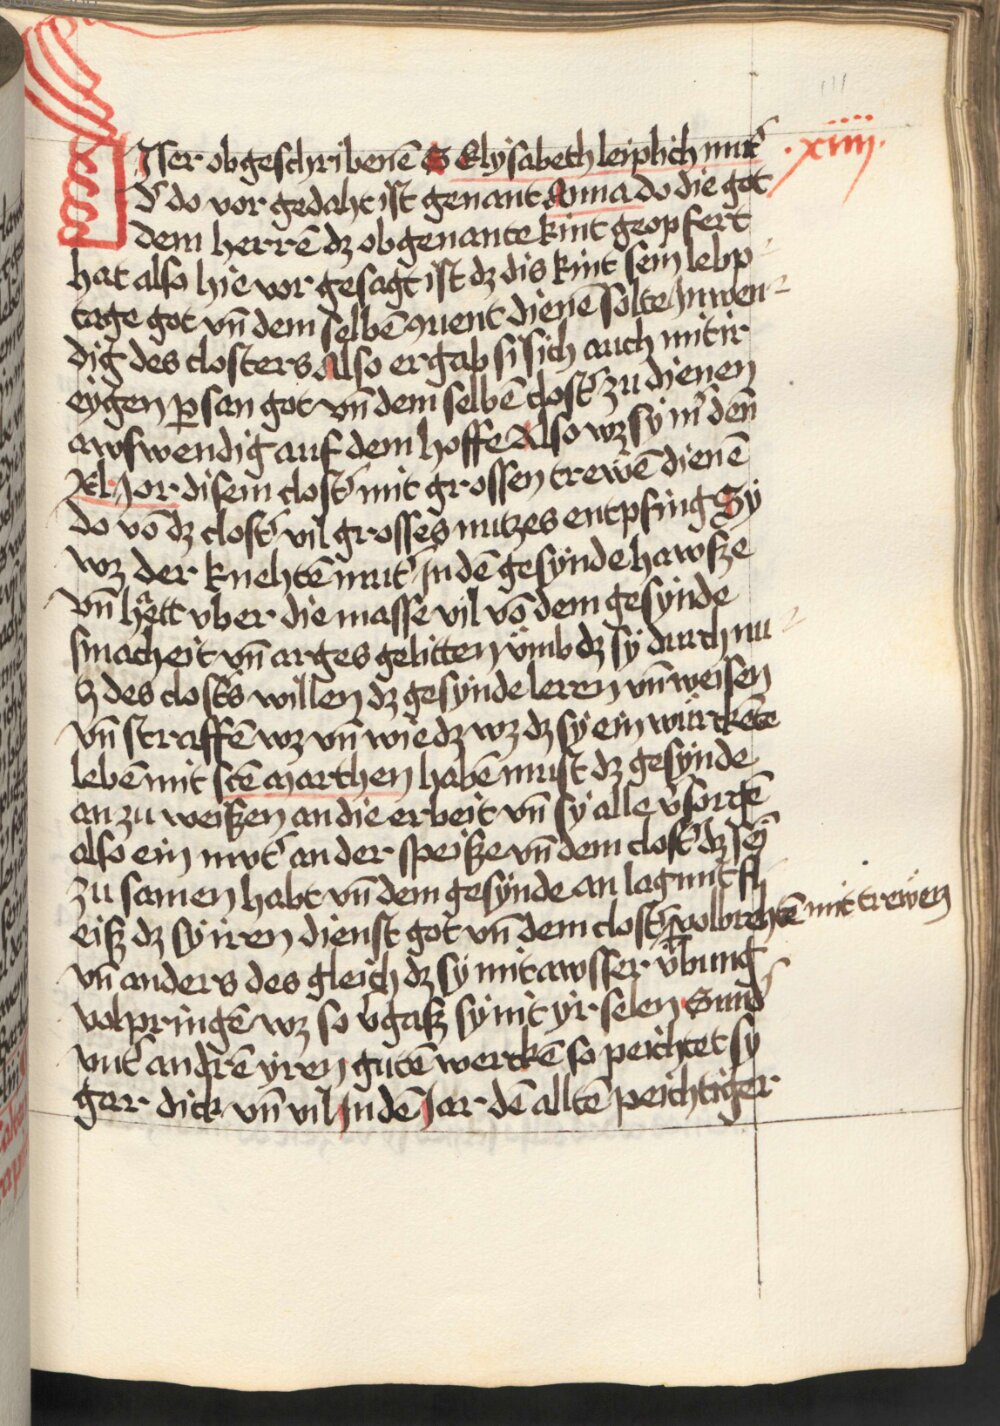 ·xiiij·
DEer obgeschribenē S Elysabeth leiplich mut᷑
d᷑ do vor gedaht ist genant Anna do die got
dem herrē dz obgenante kint geopfert
hat also hie vor gesagt ist dz dis kint sein lebp
tage got vn̄ dem selbē ꝯuent dienē solte Jnwen
dig des closters Also ergab si sich auch mit ir
eygen ꝑsan got vn̄ dem selbē clost᷑ zu dienen
awswendig auf dem hoffe Also wz sy in den̄
xl Jor disem clost᷑ mit grossen trewē dienē
do vō dz clost᷑ vil grosses nutzes entpfing Sy
wz der knehtē mut᷑ Jn dē gesynde hawsze
vn̄ hett vber die masse vil vō dem gesynde
smacheit vn̄ arges gelitten vmb dz sy durch nu
tz des closts willen dz gesynde leren vn̄ weisen
vn̄ straffē wz vn̄ wie dz wz dz sy ein würkēte
lebē mit sctē marthen habē must dz gesynde
an zu weiszen an die erbeit vn̄ sy alle v᷑sorgtē
also ein mut᷑ an der speisze vn̄ dem clost᷑ dz sey
zu samen habt vn̄ dem gesynde an lag mit fl
eisz dz sy iren dienst got vn̄ dem clost᷑ volbrehtē mit trewen
vn̄ anders des gleich dz sy mit awsser vbung
volpringē wz so v᷑gasz sy nit yr selen Sund᷑
vnt᷑ andrē yren gutē werckē so peichtet sy
gar dick vn̄ vil Jn dē Jar dē alltē peichtiger